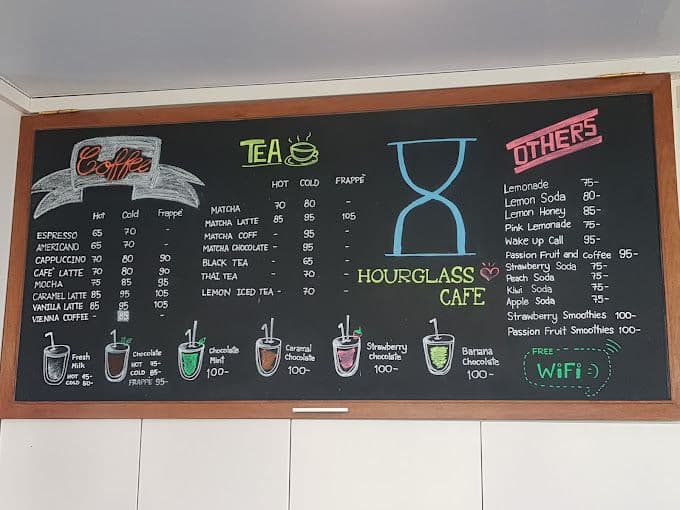 Coffee
Hot Cold Frappe
ESPRESSO 65 70 -
AMERICANO 65 70 -
CAPPUCCINO 70 80 90
CAFE' LATTE 70 80 90
MOCHA 75 85 95
CARAMEL LATTE 85 95 105
VANILLA LATTE 85 95 105
VIENNA COFFEE - 85 -
TEA
HOT COLD FRAPPE
MATCHA 70 80 -
MATCHA LATTE 85 95 105
MATCHA COFF - 95 -
MATCHA CHOCOLATE - 95 -
BLACK TEA - 65 -
THAI TEA - 70 -
LEMON ICED TEA - 70 -
HOURGLASS
CAFE
OTHERS
Lemonade 75-
Lemon Soda 80-
Lemon Honey 85-
Pink Lemonade 75-
Wake up Call 95-
Passion Fruit and Coffee 95-
Strawberry Soda 75-
Peach Soda 75-
Kiwi Soda 75-
Apple Soda 75-
Strawberry Smoothies 100-
Passion Fruit Smoothies 100-
Fresh
Milk
HOT 45-
COLD 50-
Chocolate
HOT 75-
COLD 85-
FRAPPE 95-
Chocolate
Mint
100-
Caramel
Chocolate
100-
Strawberry
Chocolate
100-
Banana
Chocolate
100-
FREE
WiFi :)